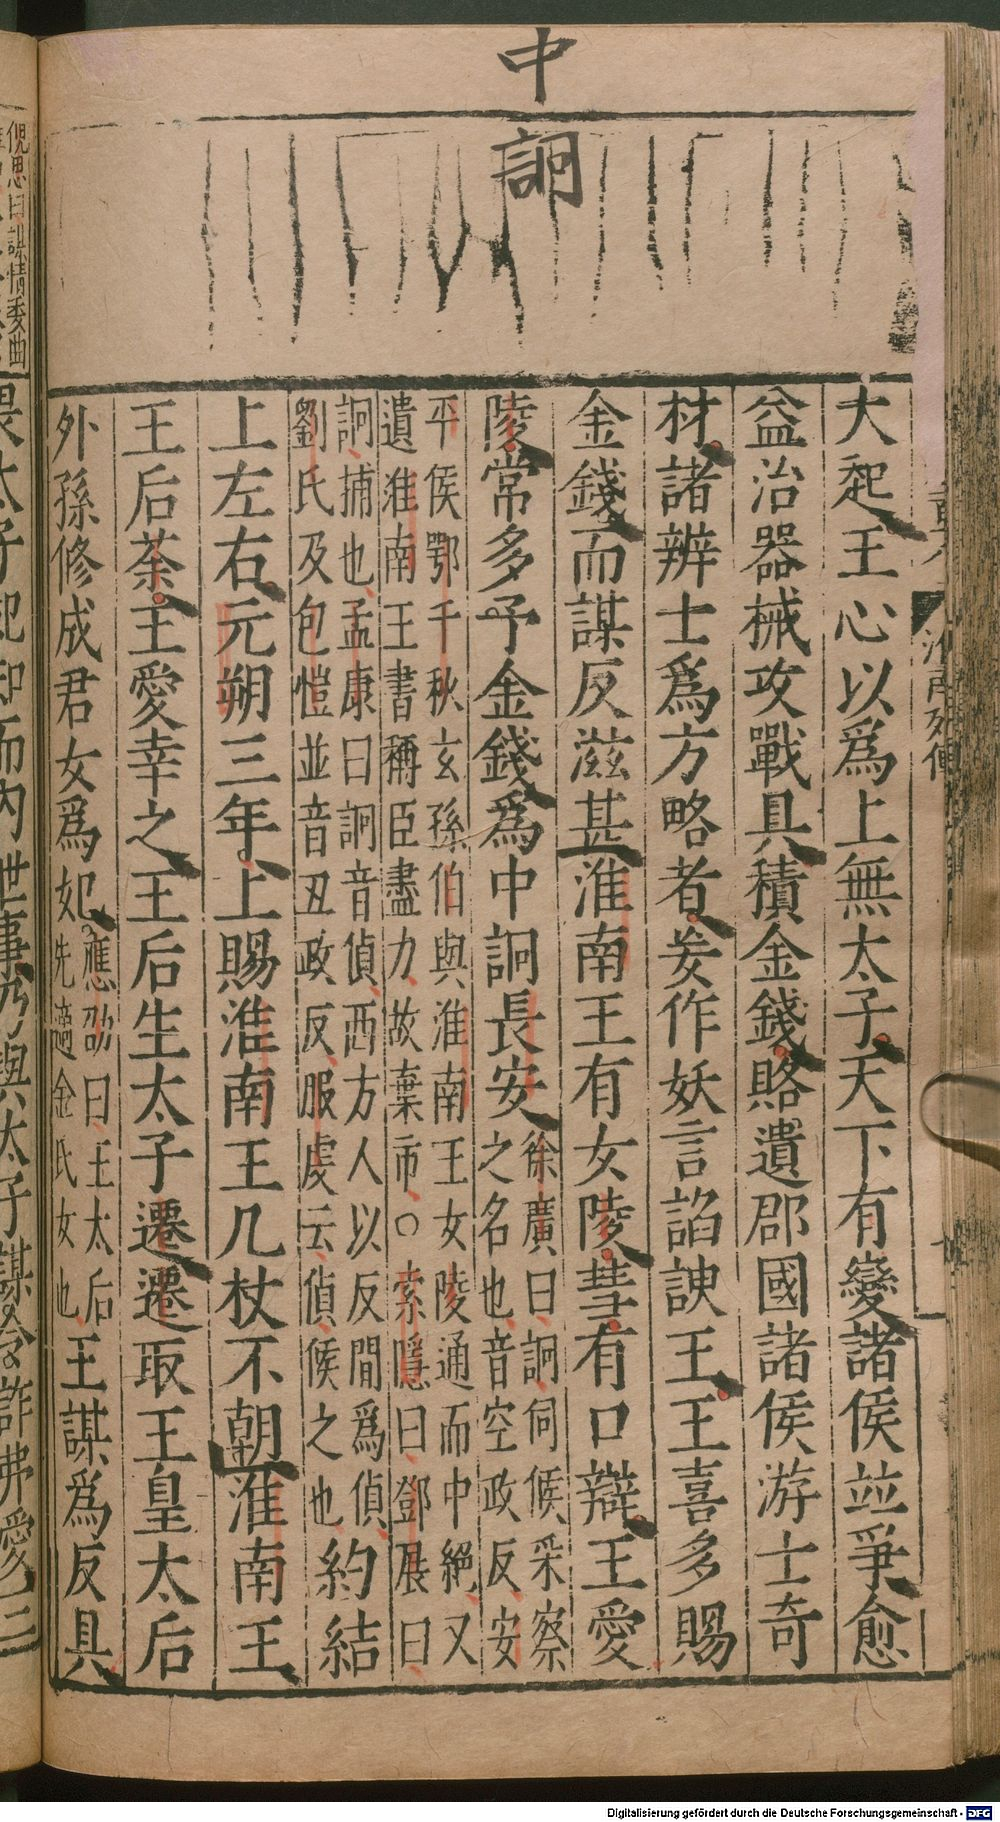 中詗
大起王心以爲上無太子天下有變諸侯並爭愈
益治器械攻戰具積金錢賂遺郡國諸侯游士奇
材諸辨士爲方略者妄作妖言諂諛王王喜多賜
金錢而謀反滋甚淮南王有女陵彗有口辯王愛
陵常多予金錢爲中詗長安
徐廣曰詗伺候采察
之名也音空政反安
平侯鄂千秋玄孫伯與淮南王女陵通而中絕又
遺淮南王書稱臣盡力故棄市○索隱曰鄧展曰
詗捕也孟康曰詗音偵西方人以反間爲偵
劉氏及包愷並音丑政反服虔云偵候之也
約結
上左右元朔三年上賜淮南王几杖不朝淮南王
王后荼王愛幸之王后生太子遷遷取王皇太后
外孫修成君女爲妃
應劭曰王太后
先適金氏女也
王謀爲反具
倪思曰謀情委曲
畏太子知而內泄事乃與太子謀令詐弗愛三
Digitalisierung gefördert durch die Deutsche Forschungsgemeinschaft - DFG